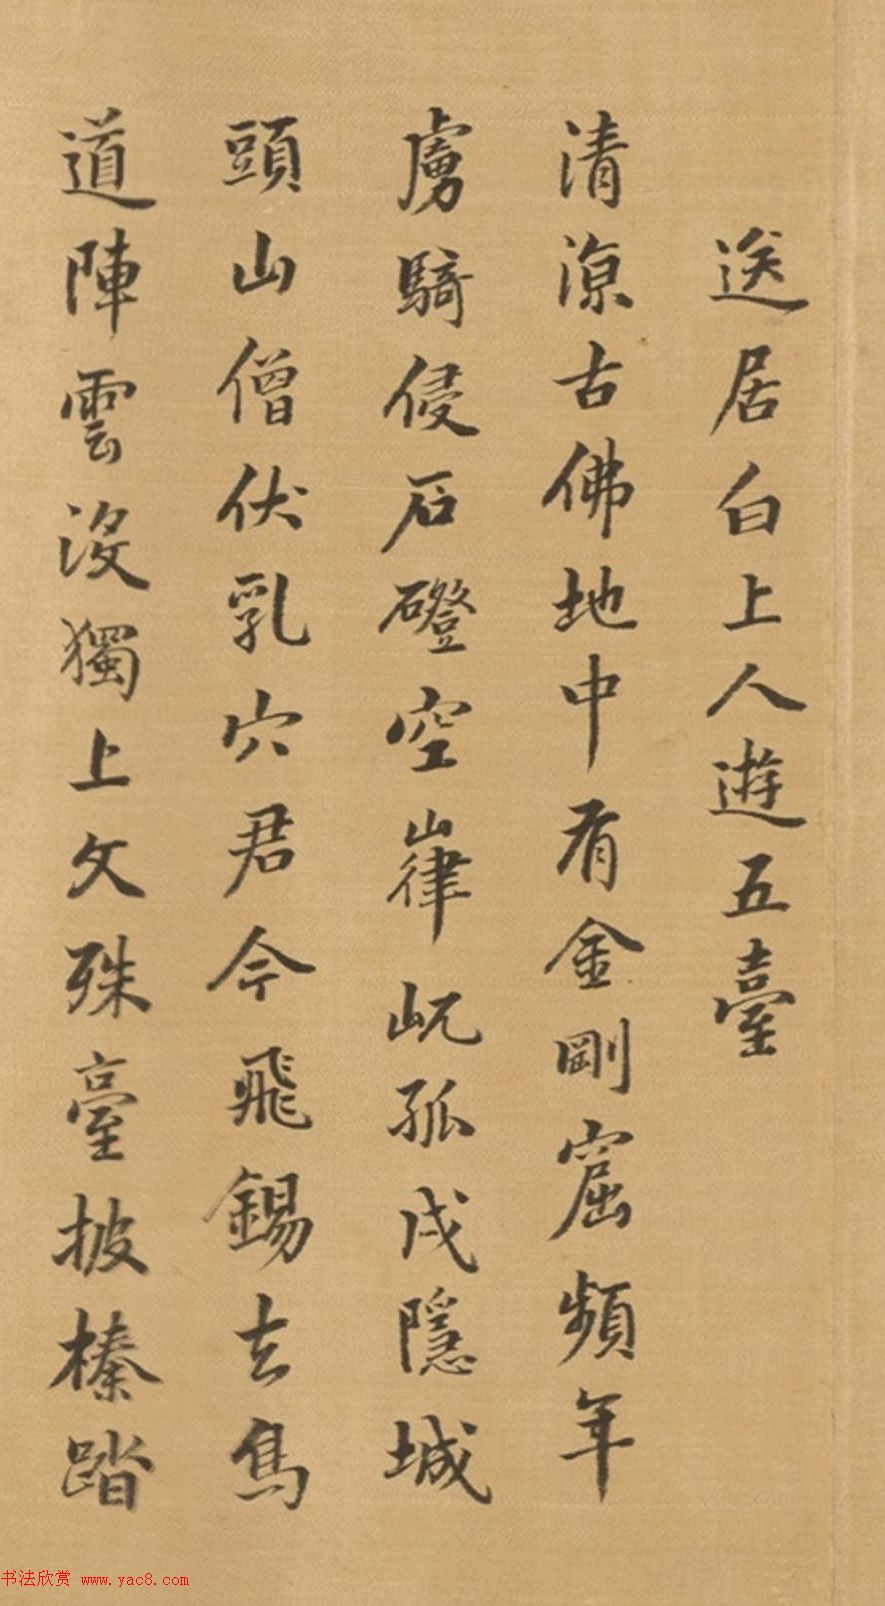 送居白上人遊五臺
清涼古佛地中有金剛窟頻年
虜騎侵石磴空嵂屼孤戍隱城
頭山僧伏乳穴君今飛錫去鳥
道陣雲没獨上文殊臺披榛踏
书法欣赏 www.yac8.com